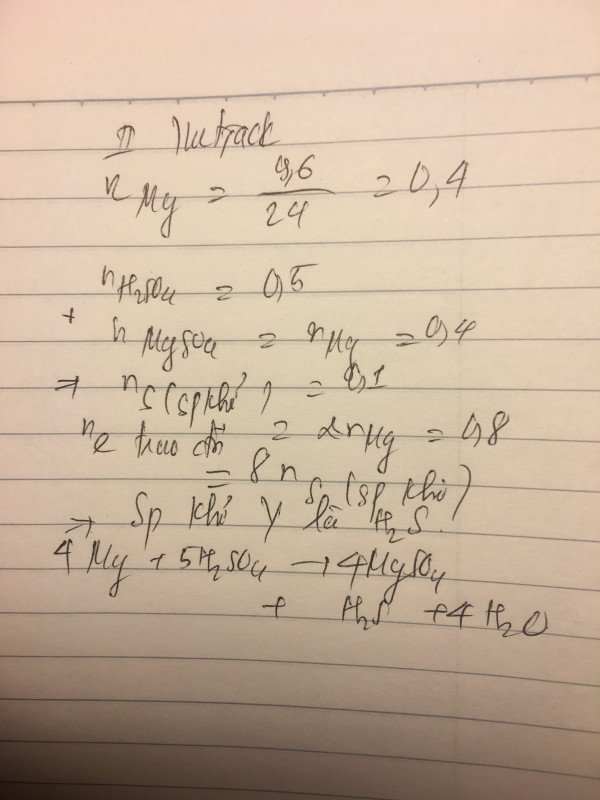 n Mg = 9,6 / 24 = 0,4
nH2SO4 = 0,5
+ n MgSO4 = nMg = 0,4
⇒ n S (sp khử) = 0,1
ne trao đổi = 2nMg = 0,8
= 8 n S (sp khử)
⇒ Sp khử Y là H2S.
4 Mg + 5H2SO4 → 4MgSO4
+ H2S + 4 H2O